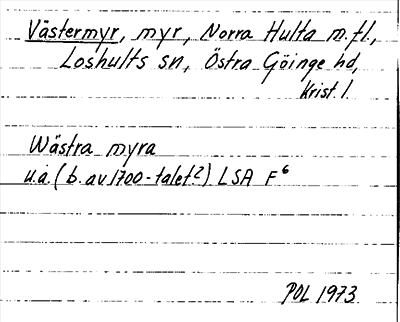 Västermyr, myr, Norra Hulta m.fl.,
Loshults sn, Östra Göinge hd,
Krist. l.
Wästra myra
u.å. (b. av 1700-talet?) LSA F6
POL 1973